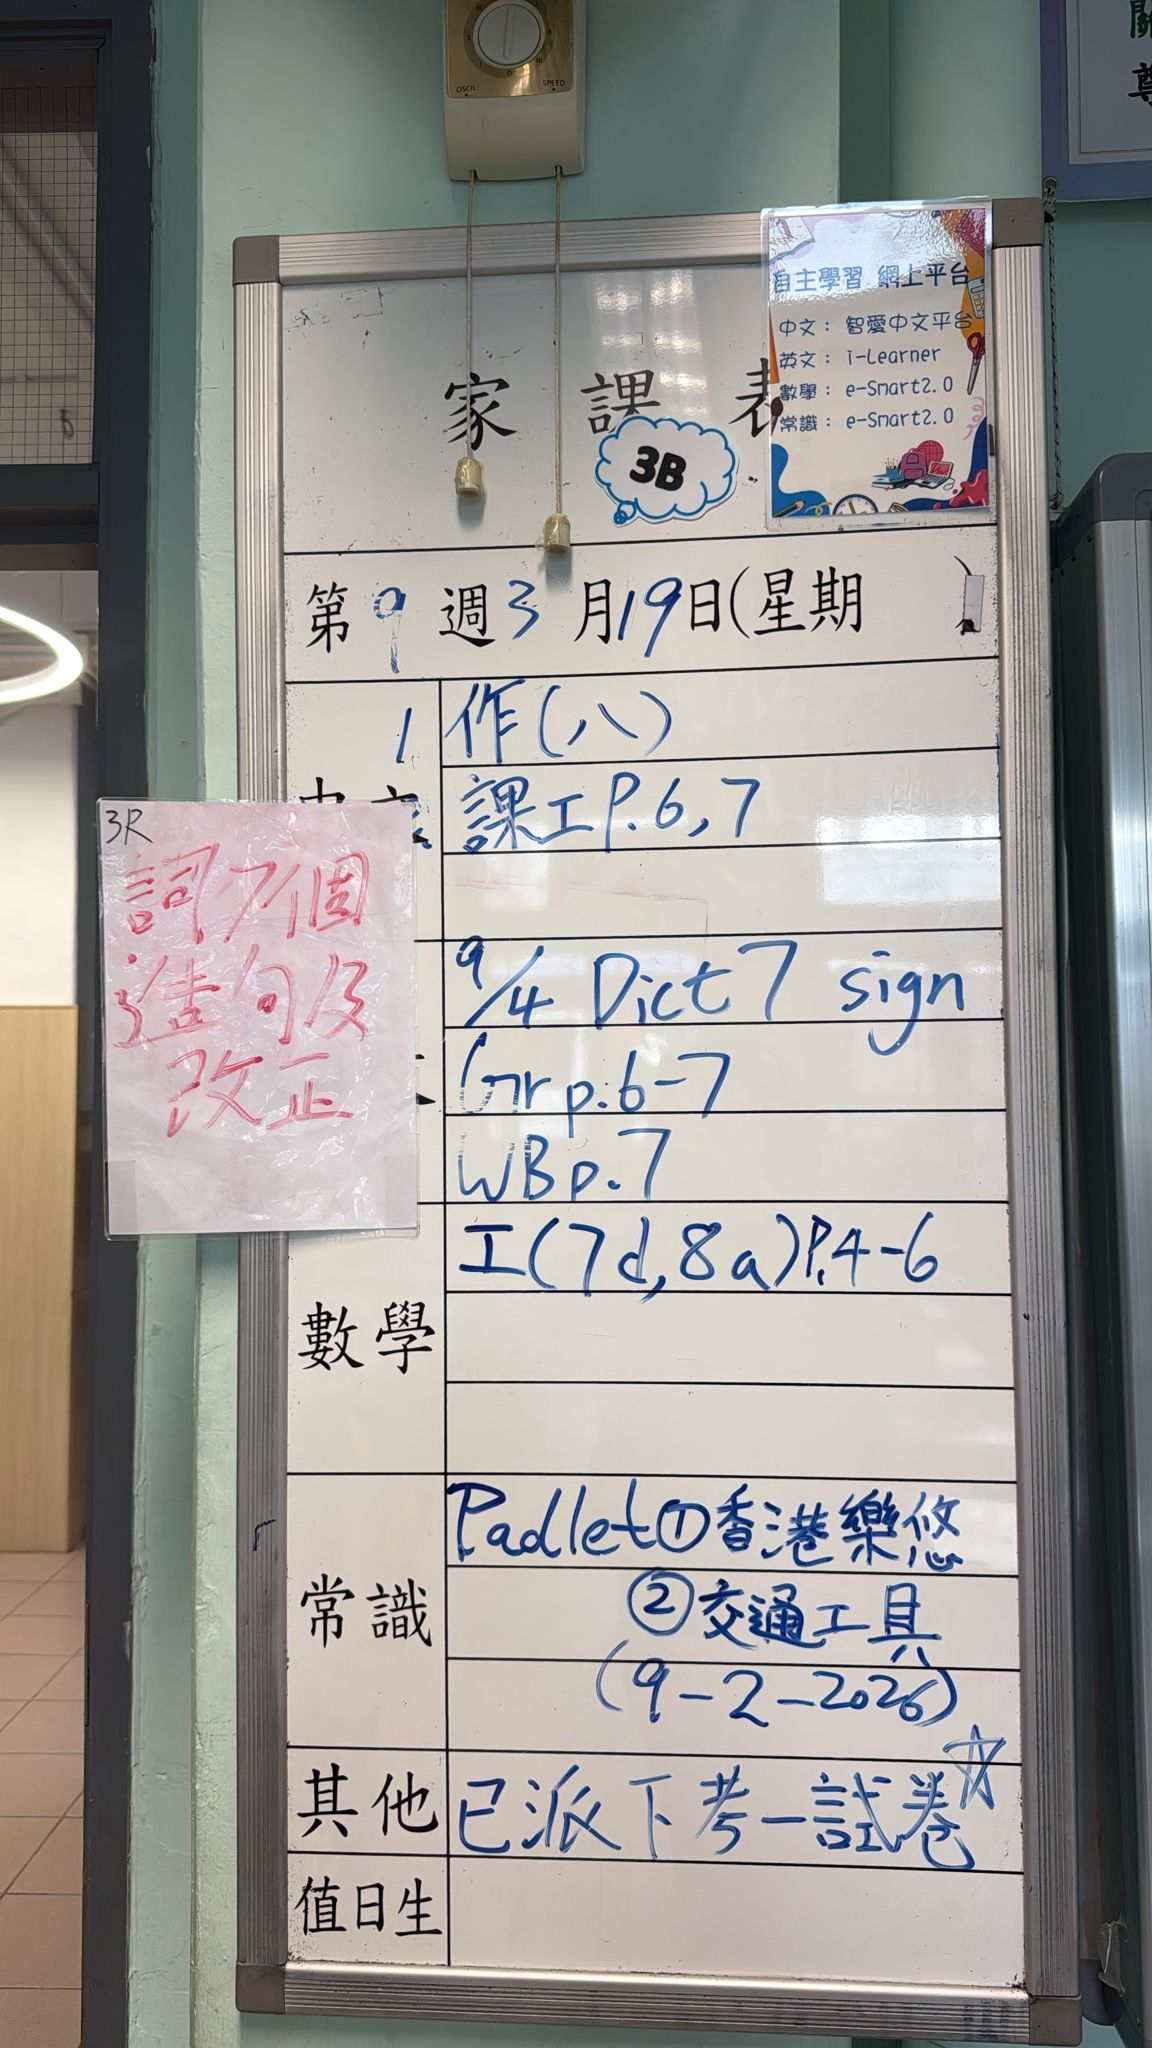 OSCIL
SPEED
自主學習 網上平台
中文： 智愛中文平台
英文： i-Learner
數學： e-Smart2.0
常識： e-Smart2.0
家 課 表
3B
第 9 週 3 月 19 日(星期
1 作(八)
課工 P.6,7
3R
詞7個
造句及
改正
9/4 Dict 7 sign
Gr p.6-7
WB p.7
數學 工(7d,8a)P.4-6
常識 Padlet ①香港樂悠
②交通工具
(9-2-2026)
其他 已派下考一試卷☆
值日生